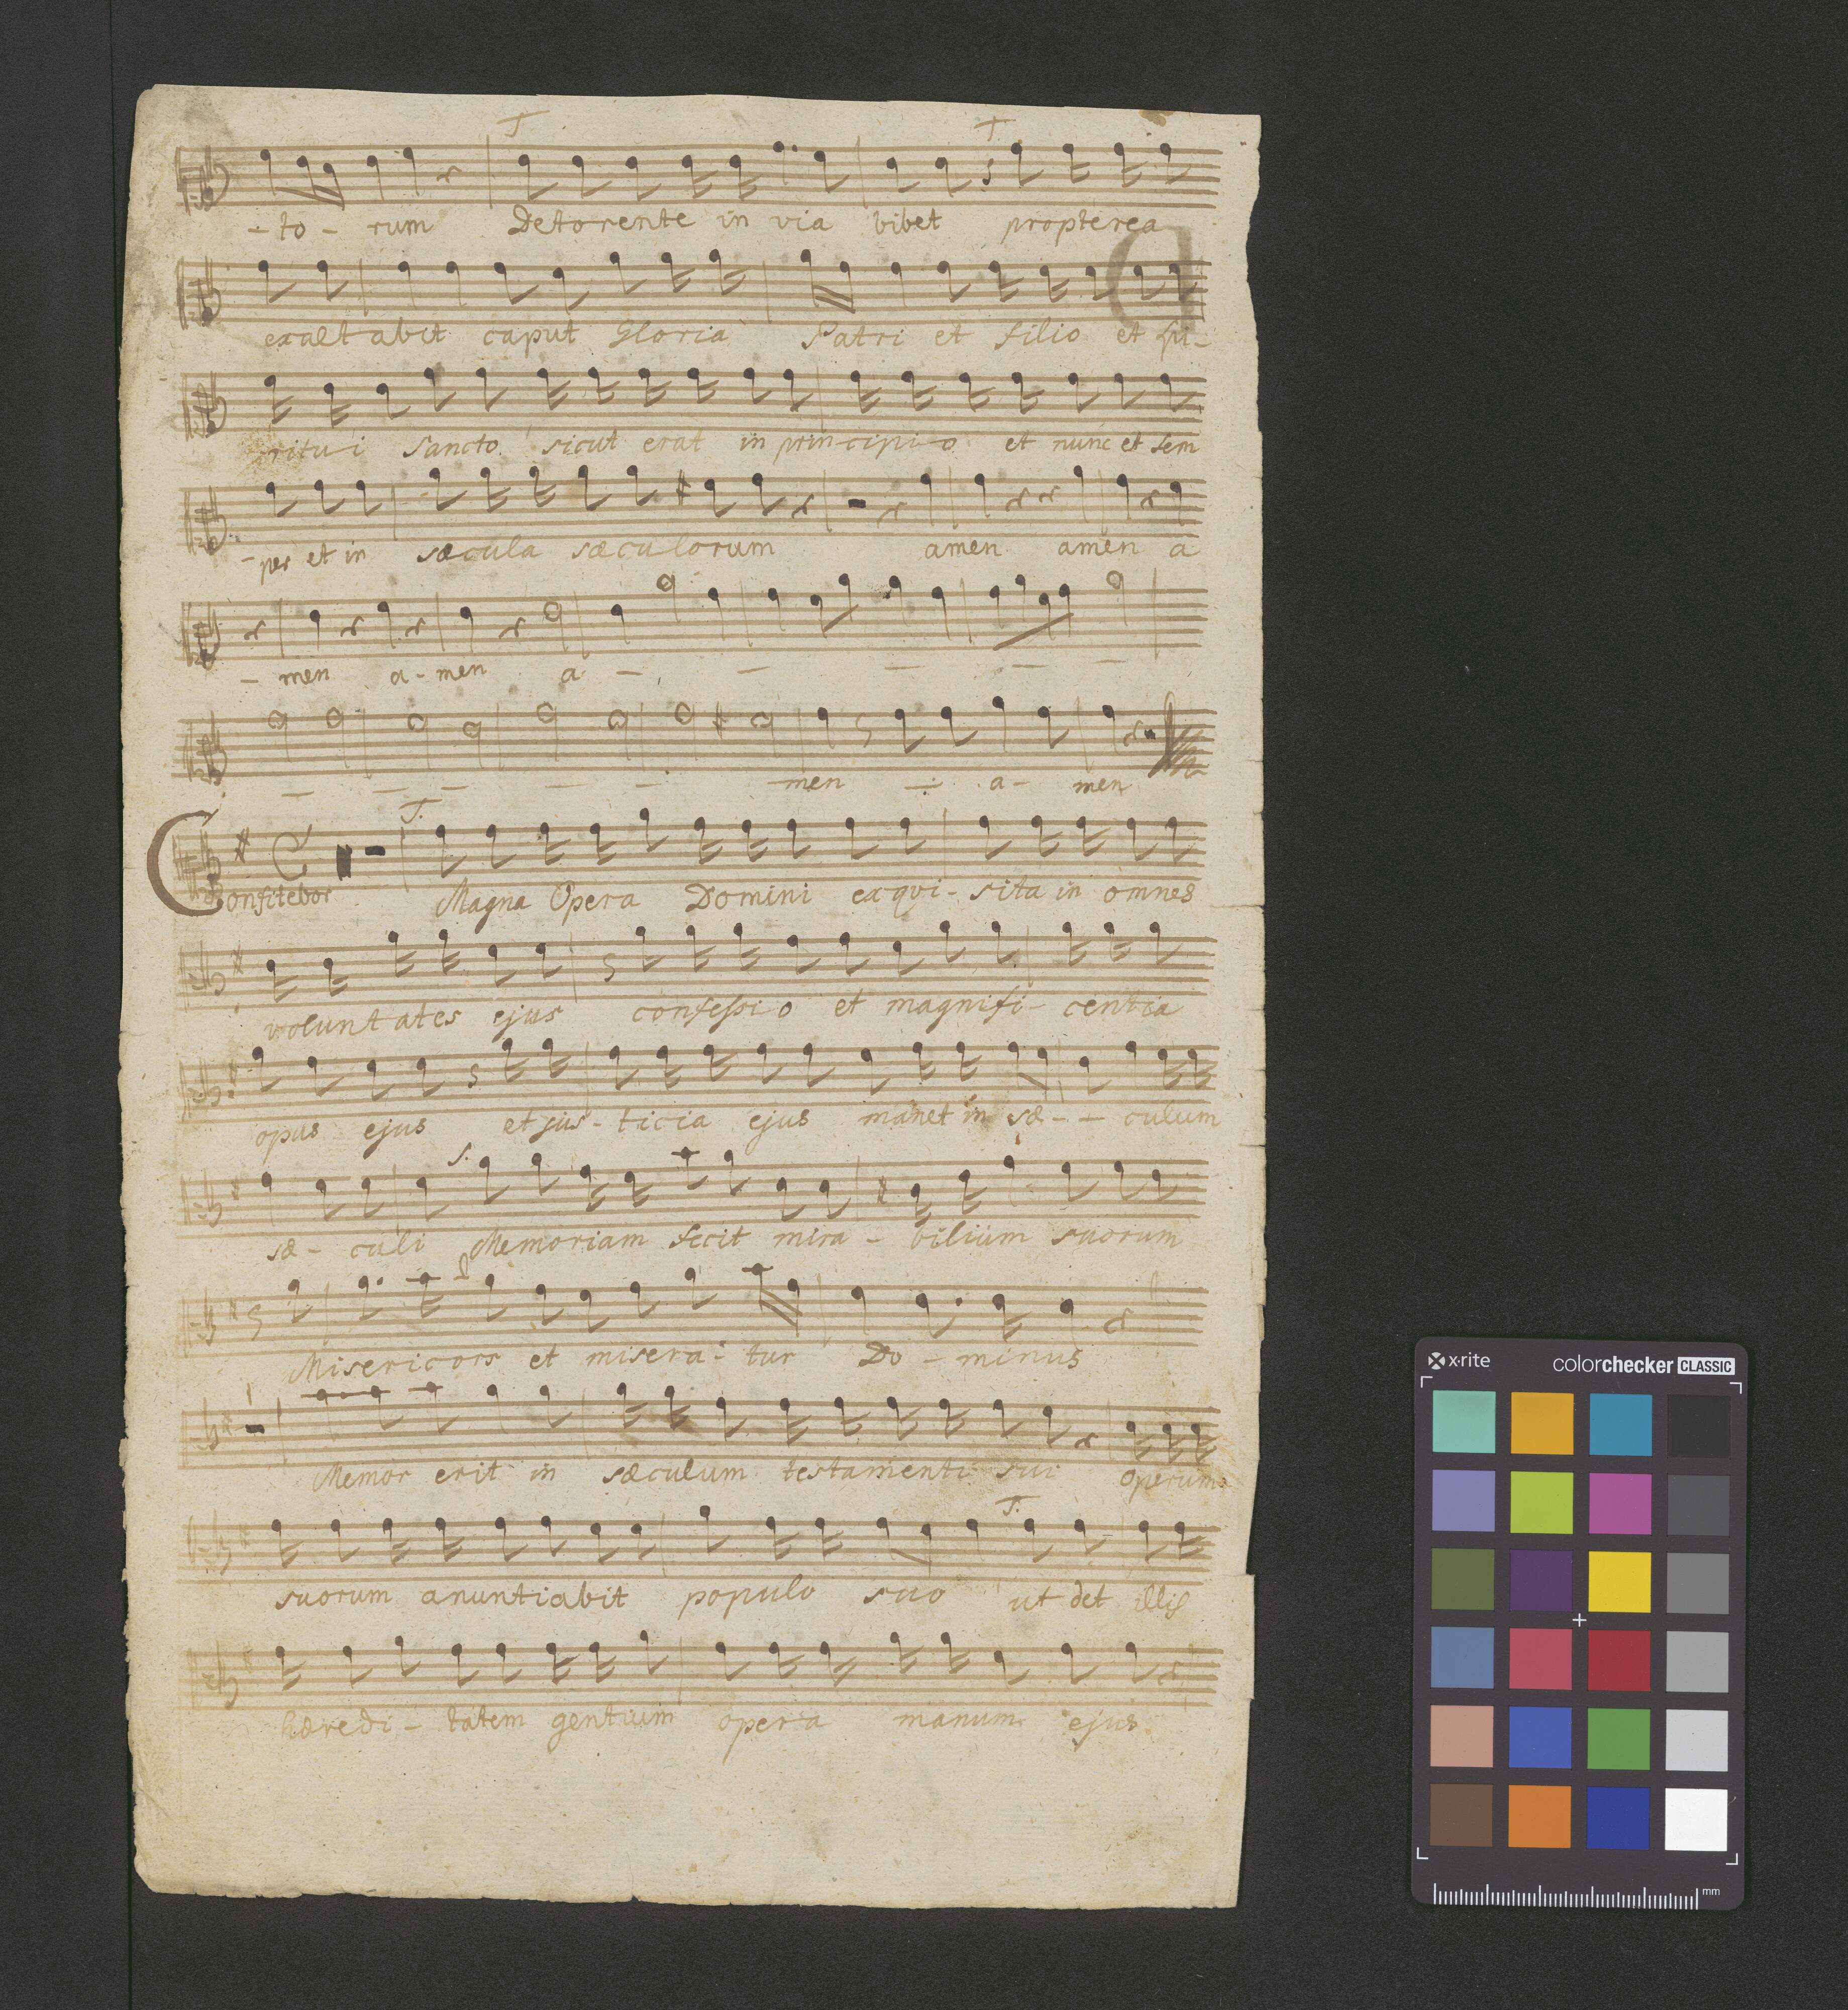 T T
- to - rum Detorente in via bibet propterea
exaltabit caput Gloria Patri et filio et spi-
ritu-i Sancto sicut erat in principi-o et nunc et sem
-per et in sæcula sæculorum amen amen a
- men a-men a - - - - -
- - - - - men - a- men
T.
Confitebor Magna Opera Domini exqvi- sita in omnes
voluntates ejus confessio et magnifi- centia
opus ejus et jus- ticia ejus manet in sæ - - culum
S.
sæ- culi Memoriam fecit mira - bilium suorum
Misericors et misera- tur Do - minus
Memor erit in sæculum testamenti sui operum
T.
suorum anuntiabit populo suo ut det illis
hæredi- tatem gentium opera manum ejus
x·rite colorchecker CLASSIC
mm